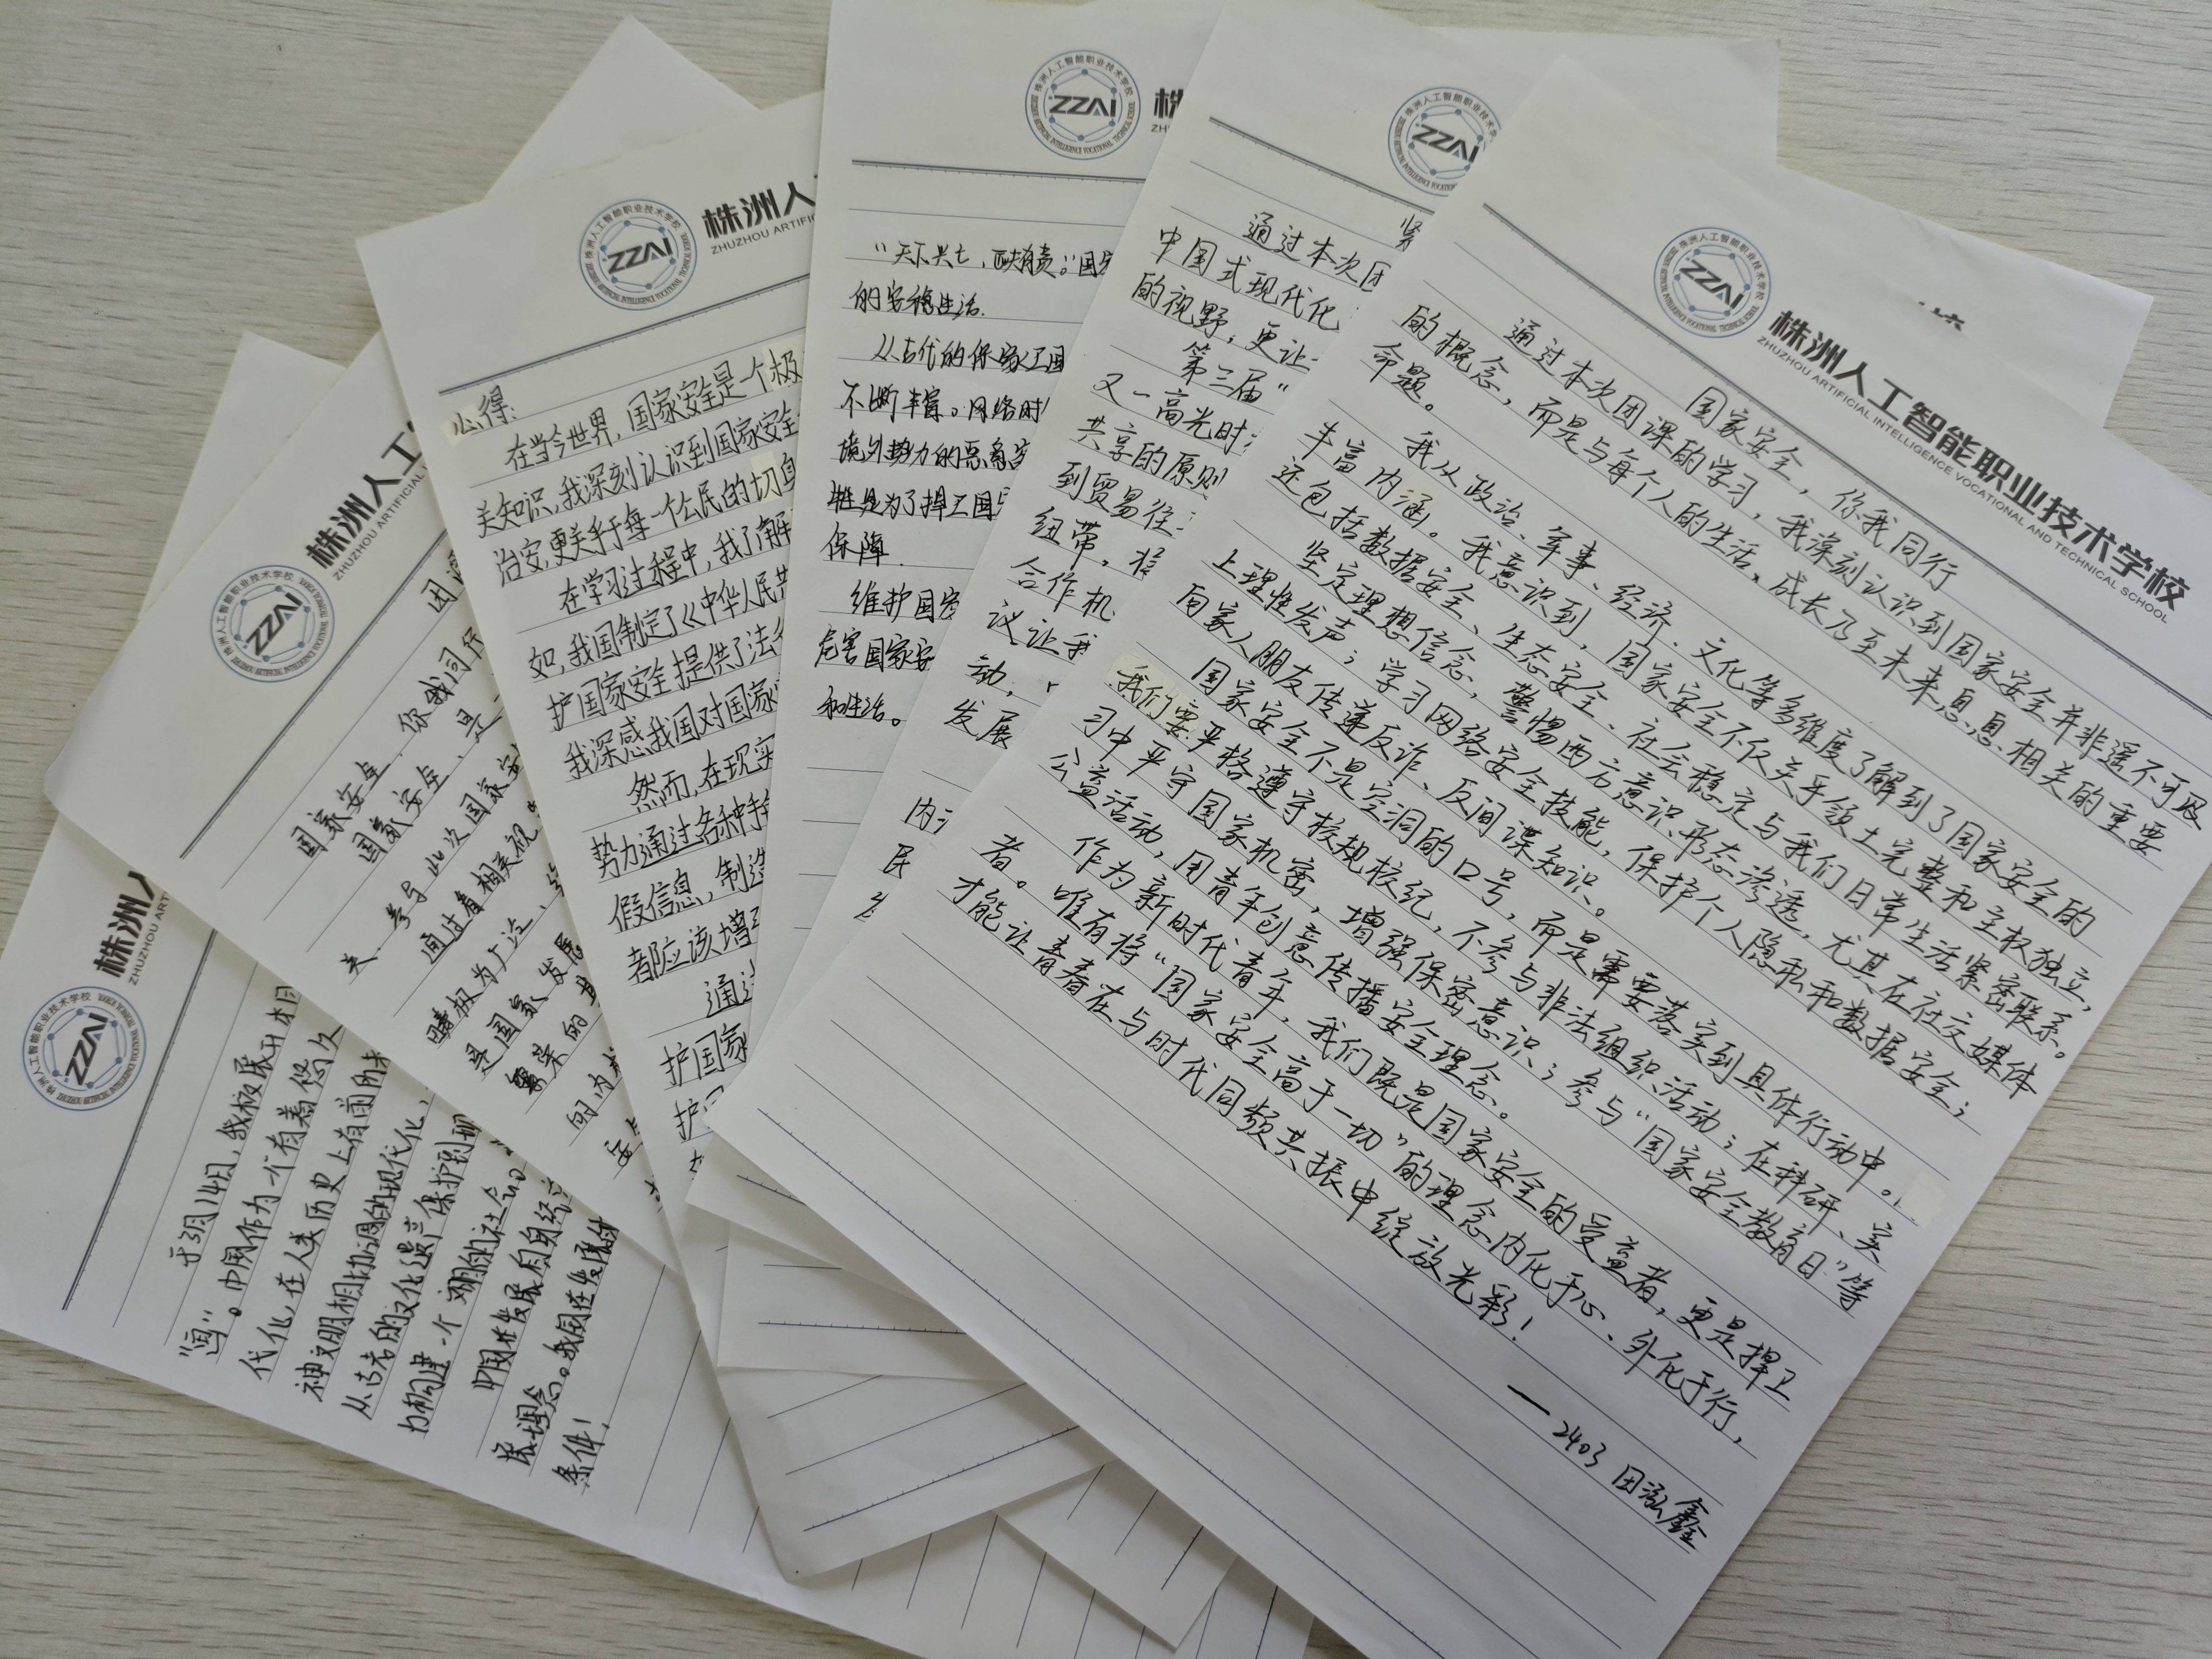 株洲人工智能职业技术学校
ZHUZHOU ARTIFICIAL INTELLIGENCE VOCATIONAL AND TECHNICAL SCHOOL
ZZAI
国家安全，你我同行
通过本次团课的学习，我深刻认识到国家安全并非遥不可及
的概念，而是与每个人的生活、成长乃至未来息息相关的重要
命题。
我从政治、军事、经济、文化等多维度了解到了国家安全的
丰富内涵。我意识到，国家安全不仅关乎领土完整和主权独立，
还包括数据安全、生态安全、社会稳定与我们日常生活紧密联系。
坚定理想信念，警惕西方意识形态渗透，尤其在社交媒体
上理性发声；学习网络安全技能，保护个人隐私和数据安全；
向家人朋友传递反诈、反间谍知识。
国家安全不是空洞的口号，而是需要落实到具体行动中。
我们要严格遵守校规校纪，不参与非法组织活动；在科研、实
习中严守国家机密，增强保密意识；参与“国家安全教育日”等
公益活动，用青年创意传播安全理念。
作为新时代青年，我们既是国家安全的受益者，更是捍卫
者。唯有将“国家安全高于一切”的理念内化于心、外化于行，
才能让青春在与时代同频共振中绽放光彩！
——2403 田泓鑫
ZZAI
紧
通过本次团
中国式现代化
的视野，更让
第三届“
又一高光时
共享的原则
到贸易往
纽带，
合作机
议让我
动，
发展
内
民
ZZAI
株
ZH
“天下兴亡，匹夫有责。”国
的安稳生活.
从古代的保家卫国
不断丰富。网络时
境外势力的恶意
牲是为了捍卫国
保障.
维护国家
危害国家安
和生活。
ZZAI
株洲人
ZHUZHOU ARTIFIC
心得：
在当今世界，国家安全是一个极
关知识，我深刻认识到国家安全
治安，更关乎每一个公民的切身
在学习过程中，我了解
如，我国制定了《中华人民共
护国家安全提供了法
我深感我国对国家
然而，在现实
势力通过各种手
假信息，制造
都应该增
通过
护国家
护
ZZAI
株洲人工
ZHUZHOU ARTIFICIAL
团
国家安全，你我同行
国家安全，是
关、参与此次国家安
通过看相关视
是国家发展
的内
ZZAI
株洲人
ZHUZHOU ART
于3月14日，我校展开
”。中国作为一个有着悠久
代化，在人类历史上有前所未
神文明相协调的现代化，
从古老的文化遗产保护到
力构建一个文明的社会
中国在发展自身经
展理念。我国在发展
条件！